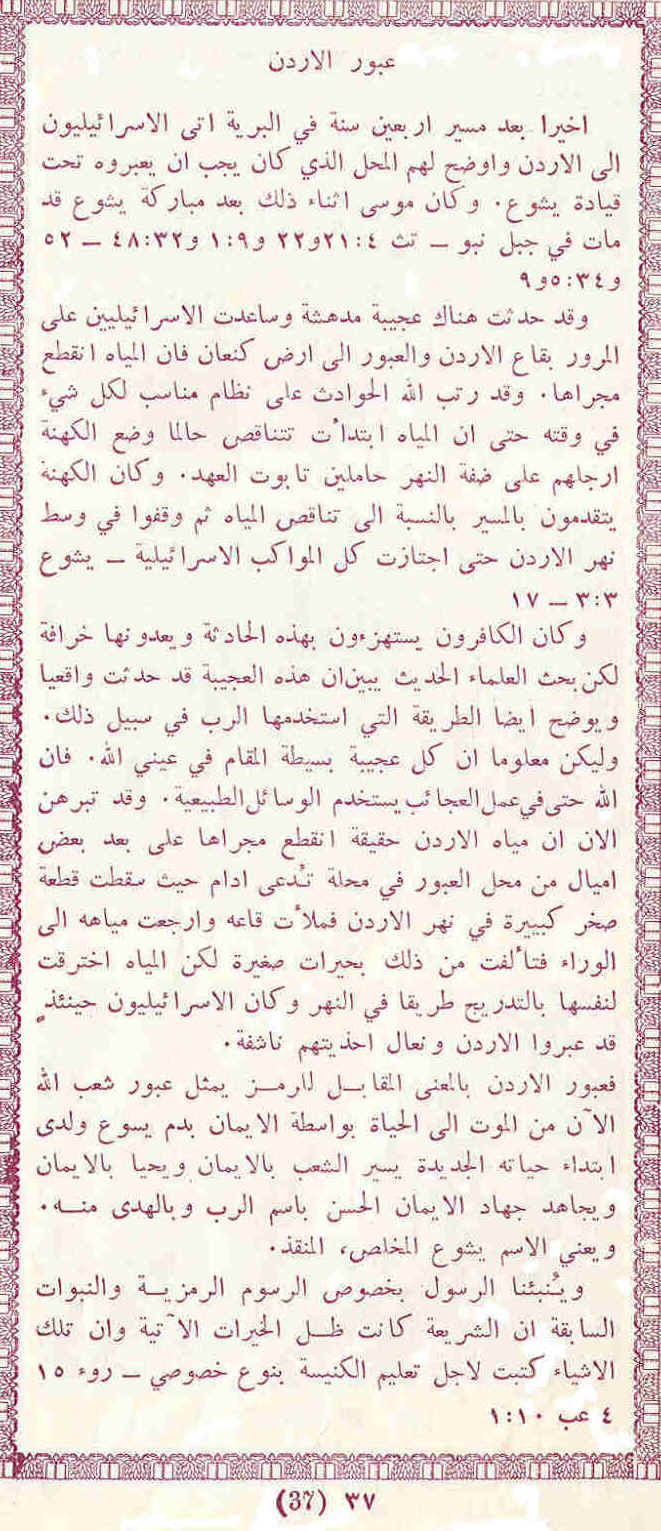 عبور الاردن
اخيرا بعد مسير اربعين سنة في البرية اتى الاسرائيليون
الى الاردن واوضح لهم المحل الذي كان يجب ان يعبروه تحت
قيادة يشوع. وكان موسى اثناء ذلك بعد مباركة يشوع قد
مات في جبل نبو – تث ٤:٢١و٢٢ و٩:١ و٣٢:٤٨ – ٥٢
و٣٤:٥و٩
وقد حدثت هناك عجيبة مدهشة وساعدت الاسرائيليين على
المرور بقاع الاردن والعبور الى ارض كنعان فان المياه انقطع
مجراها. وقد رتب الله الحوادث على نظام مناسب لكل شيء
في وقته حتى ان المياه ابتدأت تتناقص حالما وضع الكهنة
ارجلهم على ضفة النهر حاملين تابوت العهد. وكان الكهنة
يتقدمون بالمسير بالنسبة الى تناقص المياه ثم وقفوا في وسط
نهر الاردن حتى اجتازت كل المواكب الاسرائيلية – يشوع
٣:٣ – ١٧
وكان الكافرون يستهزءون بهذه الحادثة ويعدونها خرافة
لكن بحث العلماء الحديث يبين ان هذه العجيبة قد حدثت واقعيا
ويوضح ايضا الطريقة التي استخدمها الرب في سبيل ذلك.
وليكن معلوما ان كل عجيبة بسيطة المقام في عيني الله. فان
الله حتى في عمل العجائب يستخدم الوسائل الطبيعية. وقد تبرهن
الان ان مياه الاردن حقيقة انقطع مجراها على بعد بعض
اميال من محل العبور في محلة تُدعى ادام حيث سقطت قطعة
صخر كبيرة في نهر الاردن فملأت قاعه وارجعت مياهه الى
الوراء فتألفت من ذلك بحيرات صغيرة لكن المياه اخترقت
لنفسها بالتدريج طريقا في النهر وكان الاسرائيليون حينئذٍ
قد عبروا الاردن ونعال احذيتهم ناشفة.
فعبور الاردن بالمعنى المقابل للرمز يمثل عبور شعب الله
الآن من الموت الى الحياة بواسطة الايمان بدم يسوع ولدى
ابتداء حياته الجديدة يسير الشعب بالايمان ويحيا بالايمان
ويجاهد جهاد الايمان الحسن باسم الرب وبالهدى منه.
ويعني الاسم يشوع المخلص، المنقذ.
ويُنبئنا الرسول بخصوص الرسوم الرمزية والنبوات
السابقة ان الشريعة كانت ظل الخيرات الآتية وان تلك
الاشياء كتبت لاجل تعليم الكنيسة بنوع خصوصي – روء ١٥
٤ عب ١٠:١
٣٧ (37)